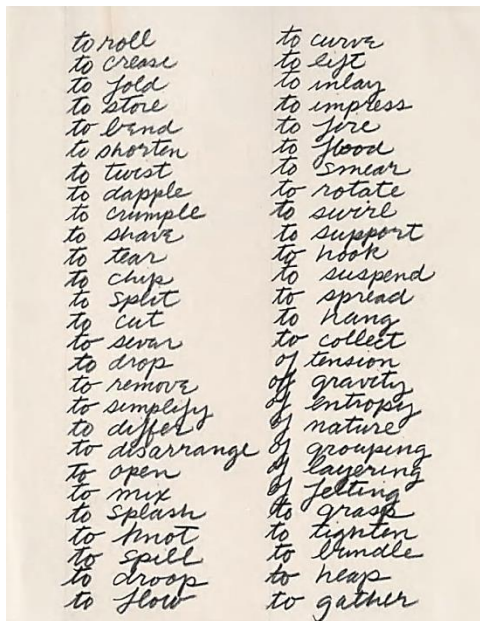 to roll
to crease
to fold
to store
to bend
to shorten
to twist
to dapple
to crumple
to shave
to tear
to chip
to split
to cut
to sever
to drop
to remove
to simplify
to differ
to disarrange
to open
to mix
to splash
to knot
to spill
to droop
to flow
to curve
to lift
to inlay
to impress
to fire
to flood
to smear
to rotate
to swirl
to support
to hook
to suspend
to spread
to hang
to collect
of tension
of gravity
of entropy
of nature
of grouping
of layering
of felting
to grasp
to tighten
to bundle
to heap
to gather